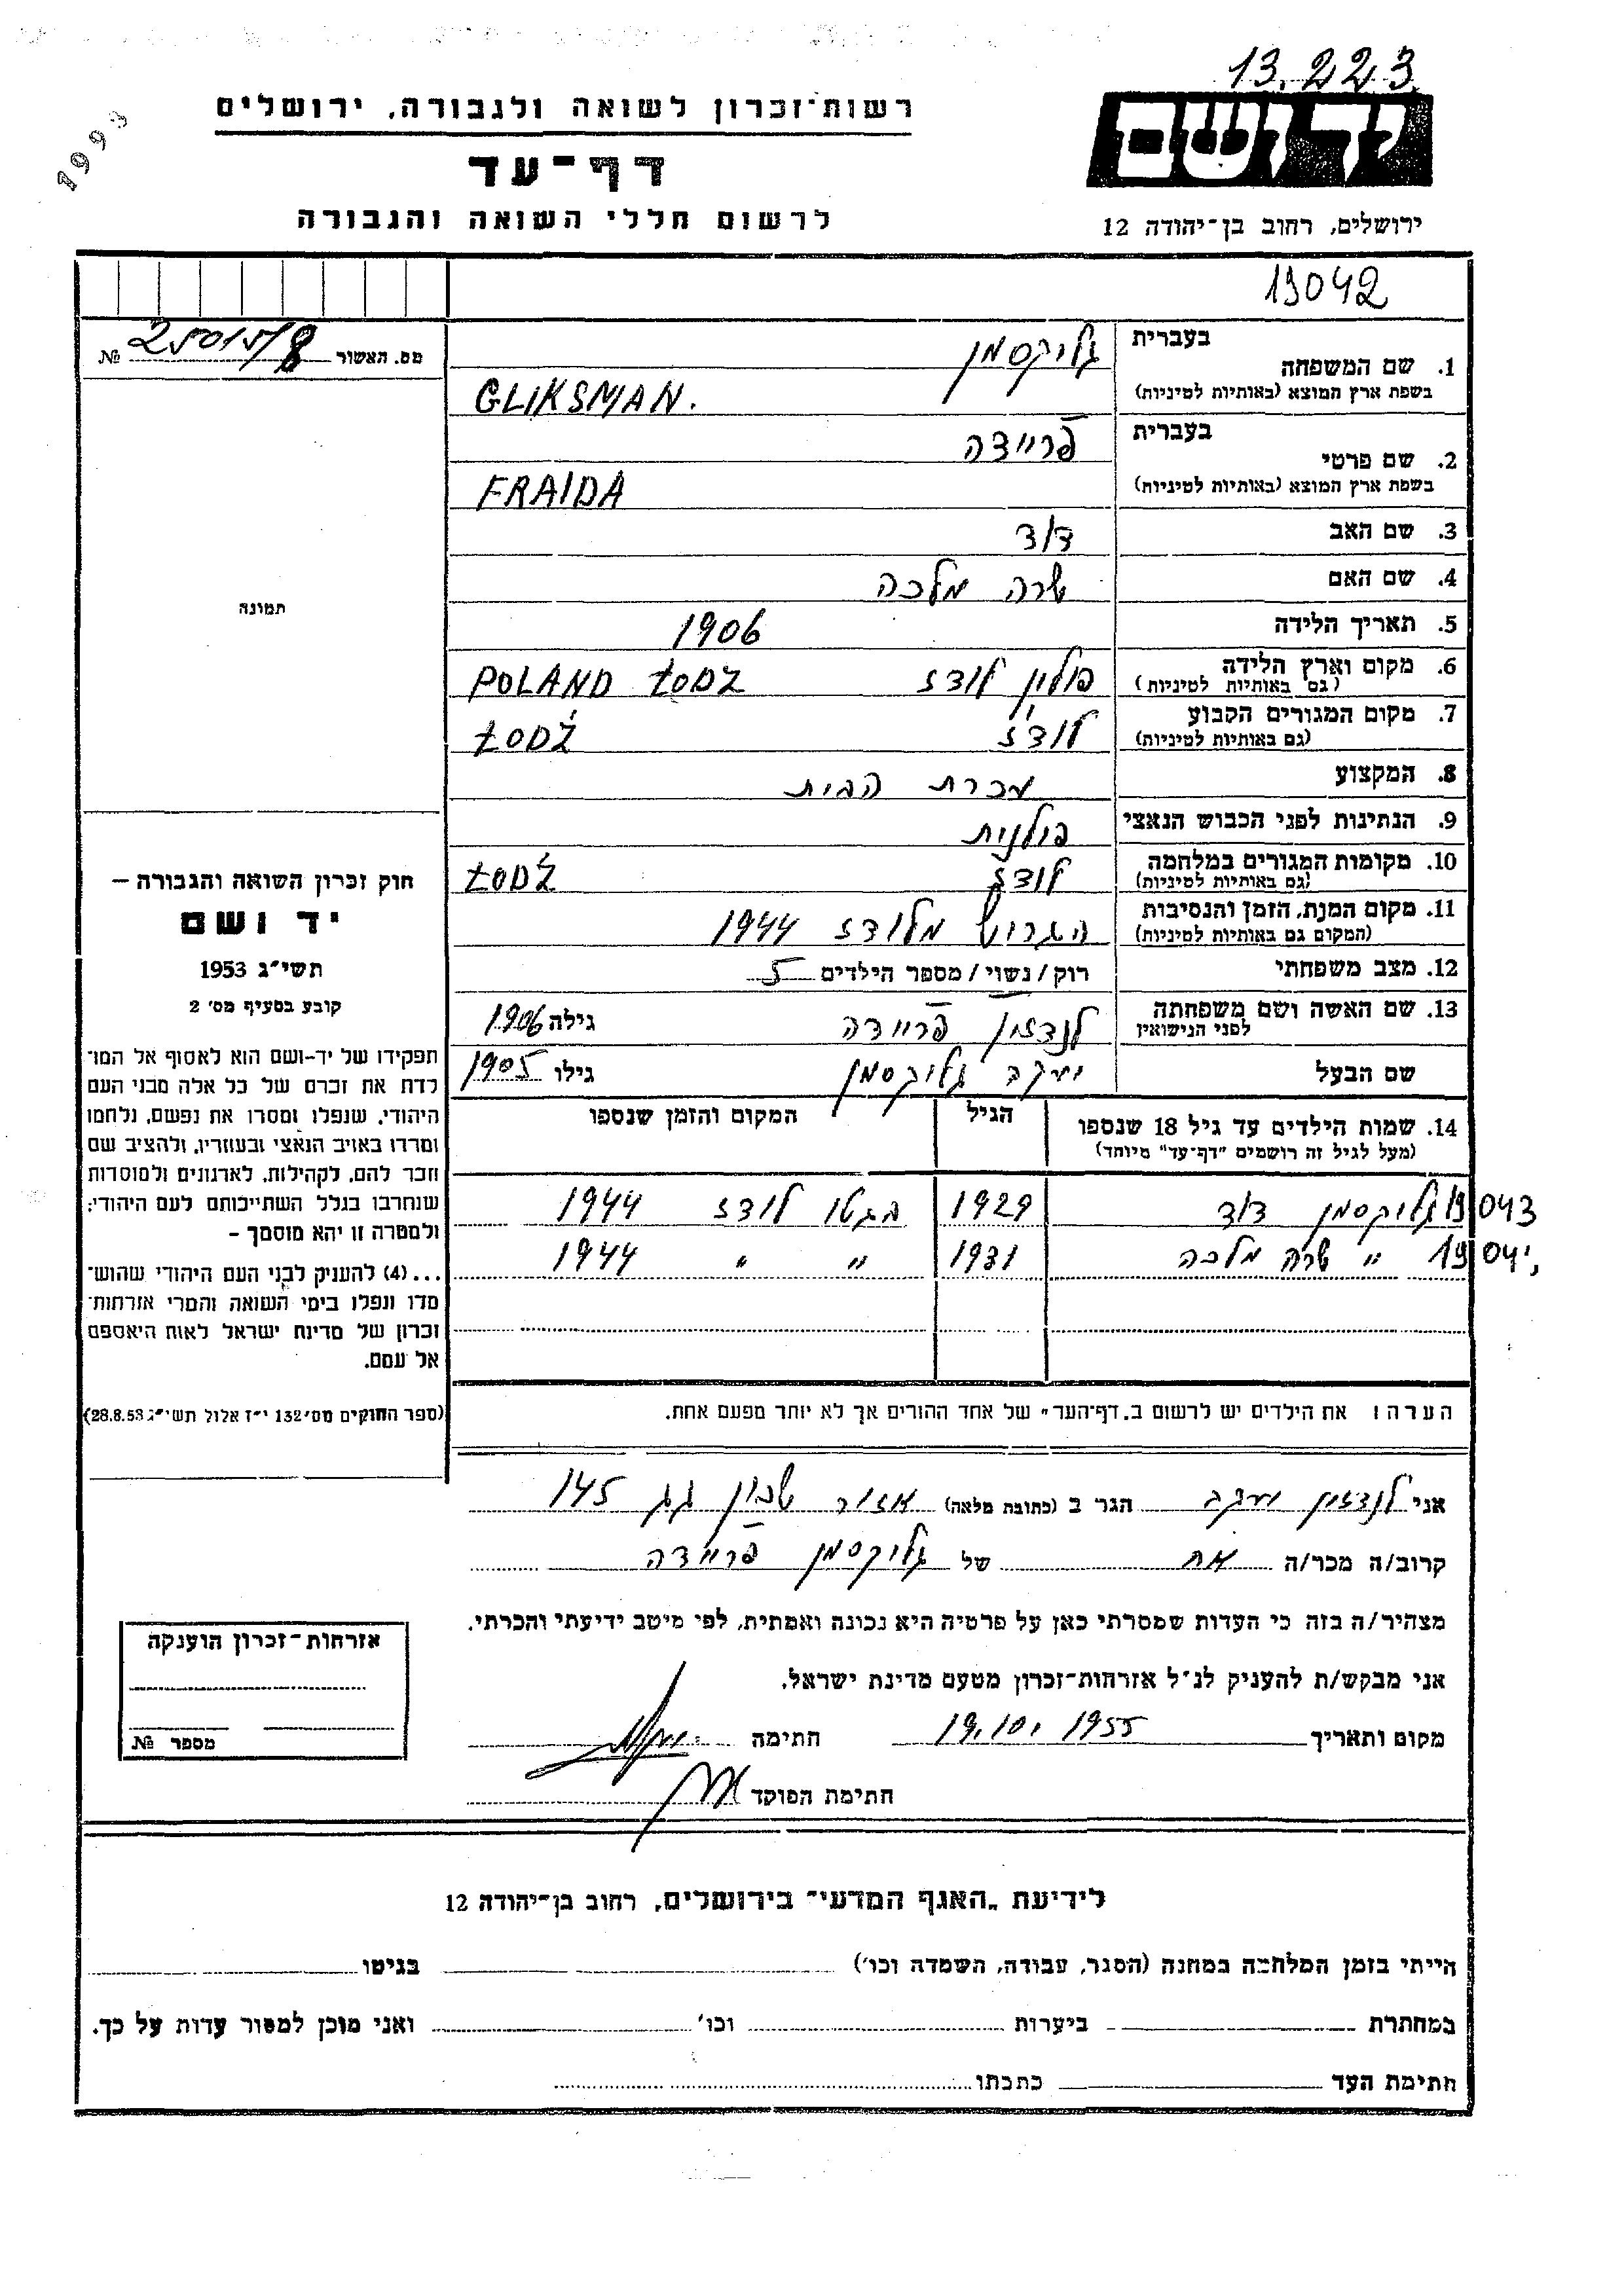 13.223
1993
רשות־זכרון לשואה ולגבורה, ירושלים
דף־עד
לרשום חללי השואה והגבורה
יד ושם
ירושלים, רחוב בן־יהודה 12
19042
מס. האשור 25015/8 №
בעברית
1. שם המשפחה גליקסמן
בשפת ארץ המוצא (באותיות לטיניות) GLIKSMAN.
בעברית
2. שם פרטי פריידה
בשפת ארץ המוצא (באותיות לטיניות) FRAIDA
3. שם האב דוד
4. שם האם שרה מלכה
5. תאריך הלידה 1906
6. מקום וארץ הלידה פולין לודז POLAND ŁODZ
(גם באותיות לטיניות)
7. מקום המגורים הקבוע לודז ŁODŹ
(גם באותיות לטיניות)
8. המקצוע עכרת הבית
9. הנתינות לפני הכבוש הנאצי פולנית
10. מקומות המגורים במלחמה לודז ŁODŹ
(גם באותיות לטיניות)
11. מקום המות, הזמן והנסיבות הגרוש מלודז 1944
(המקום גם באותיות לטיניות)
12. מצב משפחתי רוק/נשוי/מספר הילדים 5
13. שם האשה ושם משפחתה לנדזון פריידה גילה 1906
לפני הנישואין
שם הבעל יעקב גליקסמן גילו 1905
14. שמות הילדים עד גיל 18 שנספו הגיל המקום והזמן שנספו
(מעל לגיל זה רושמים "דף־עד" מיוחד)
19043 גליקסמן דוד 1929 בגטו לודז 1944
1904 " שרה מלכה 1931 " " 1944
הערה: את הילדים יש לרשום ב„דף־העד" של אחד ההורים אך לא יותר מפעם אחת.
תמונה
חוק זכרון השואה והגבורה –
יד ושם
תשי"ג 1953
קובע בסעיף מס' 2
תפקידו של יד-ושם הוא לאסוף אל המו־
לדת את זכרם של כל אלה מבני העם
היהודי, שנפלו ומסרו את נפשם, נלחמו
ומרדו באויב הנאצי ובעוזריו, ולהציב שם
וזכר להם, לקהילות, לארגונים ולמוסדות
שנחרבו בגלל השתייכותם לעם היהודי;
ולמטרה זו יהא מוסמך –
...(4) להעניק לבני העם היהודי שהוש־
מדו ונפלו בימי השואה והמרי אזרחות־
זכרון של מדינת ישראל לאות היאספם
אל עמם.
(ספר החוקים מס' 132 י"ז אלול תשי"ג 28.8.53)
אני לנדזון יעקב הגר ב (כתובת מלאה) אזור שכון גג 145
קרוב/ה מכר/ה אח של גליקסמן פריידה
מצהיר/ה בזה כי העדות שמסרתי כאן על פרטיה היא נכונה ואמתית, לפי מיטב ידיעתי והכרתי.
אני מבקש/ת להעניק לנ"ל אזרחות־זכרון מטעם מדינת ישראל.
מקום ותאריך 19.10. 1955 חתימה
חתימת הפוקד
אזרחות־זכרון הוענקה
מספר №
לידיעת „האגף המדעי" בירושלים, רחוב בן־יהודה 12
הייתי בזמן המלחמה במחנה (הסגר, עבודה, השמדה וכו') בגיטו
במחתרת ביערות וכו' ואני מוכן למסור עדות על כך.
חתימת העד כתבתו